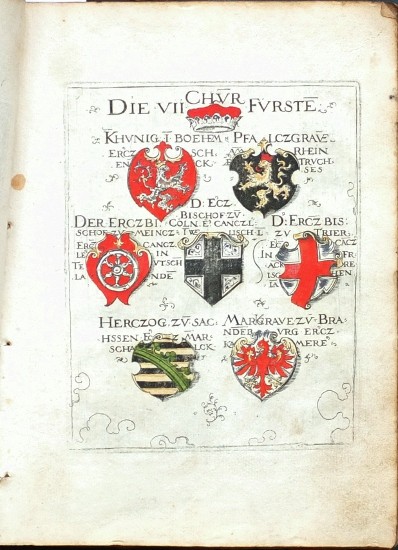 DIE VII CHVR FVRSTĒ
KHVNIG Ī BOEHEM
ERCZ SCH
EN CK
PFALCZGRAVE
RHEIN
TRVCH
SES
D: ECZ
BISCHOF ZV
CÖLN E: CANCZL
DER ERCZBI
SCHOF ZV MEINCZ
ERCZ CANCZ
LE IN
TE VTSCH
LA NDE
D: ERCZ BIS:
ZV TRIER:
IN FR
LA EN
HERCZOG ZV SAC
HSSEN ERCZ MAR
SCHA LCK
MARGRAVE ZV BRA
NDEB VRG ERCZ
KA MERE